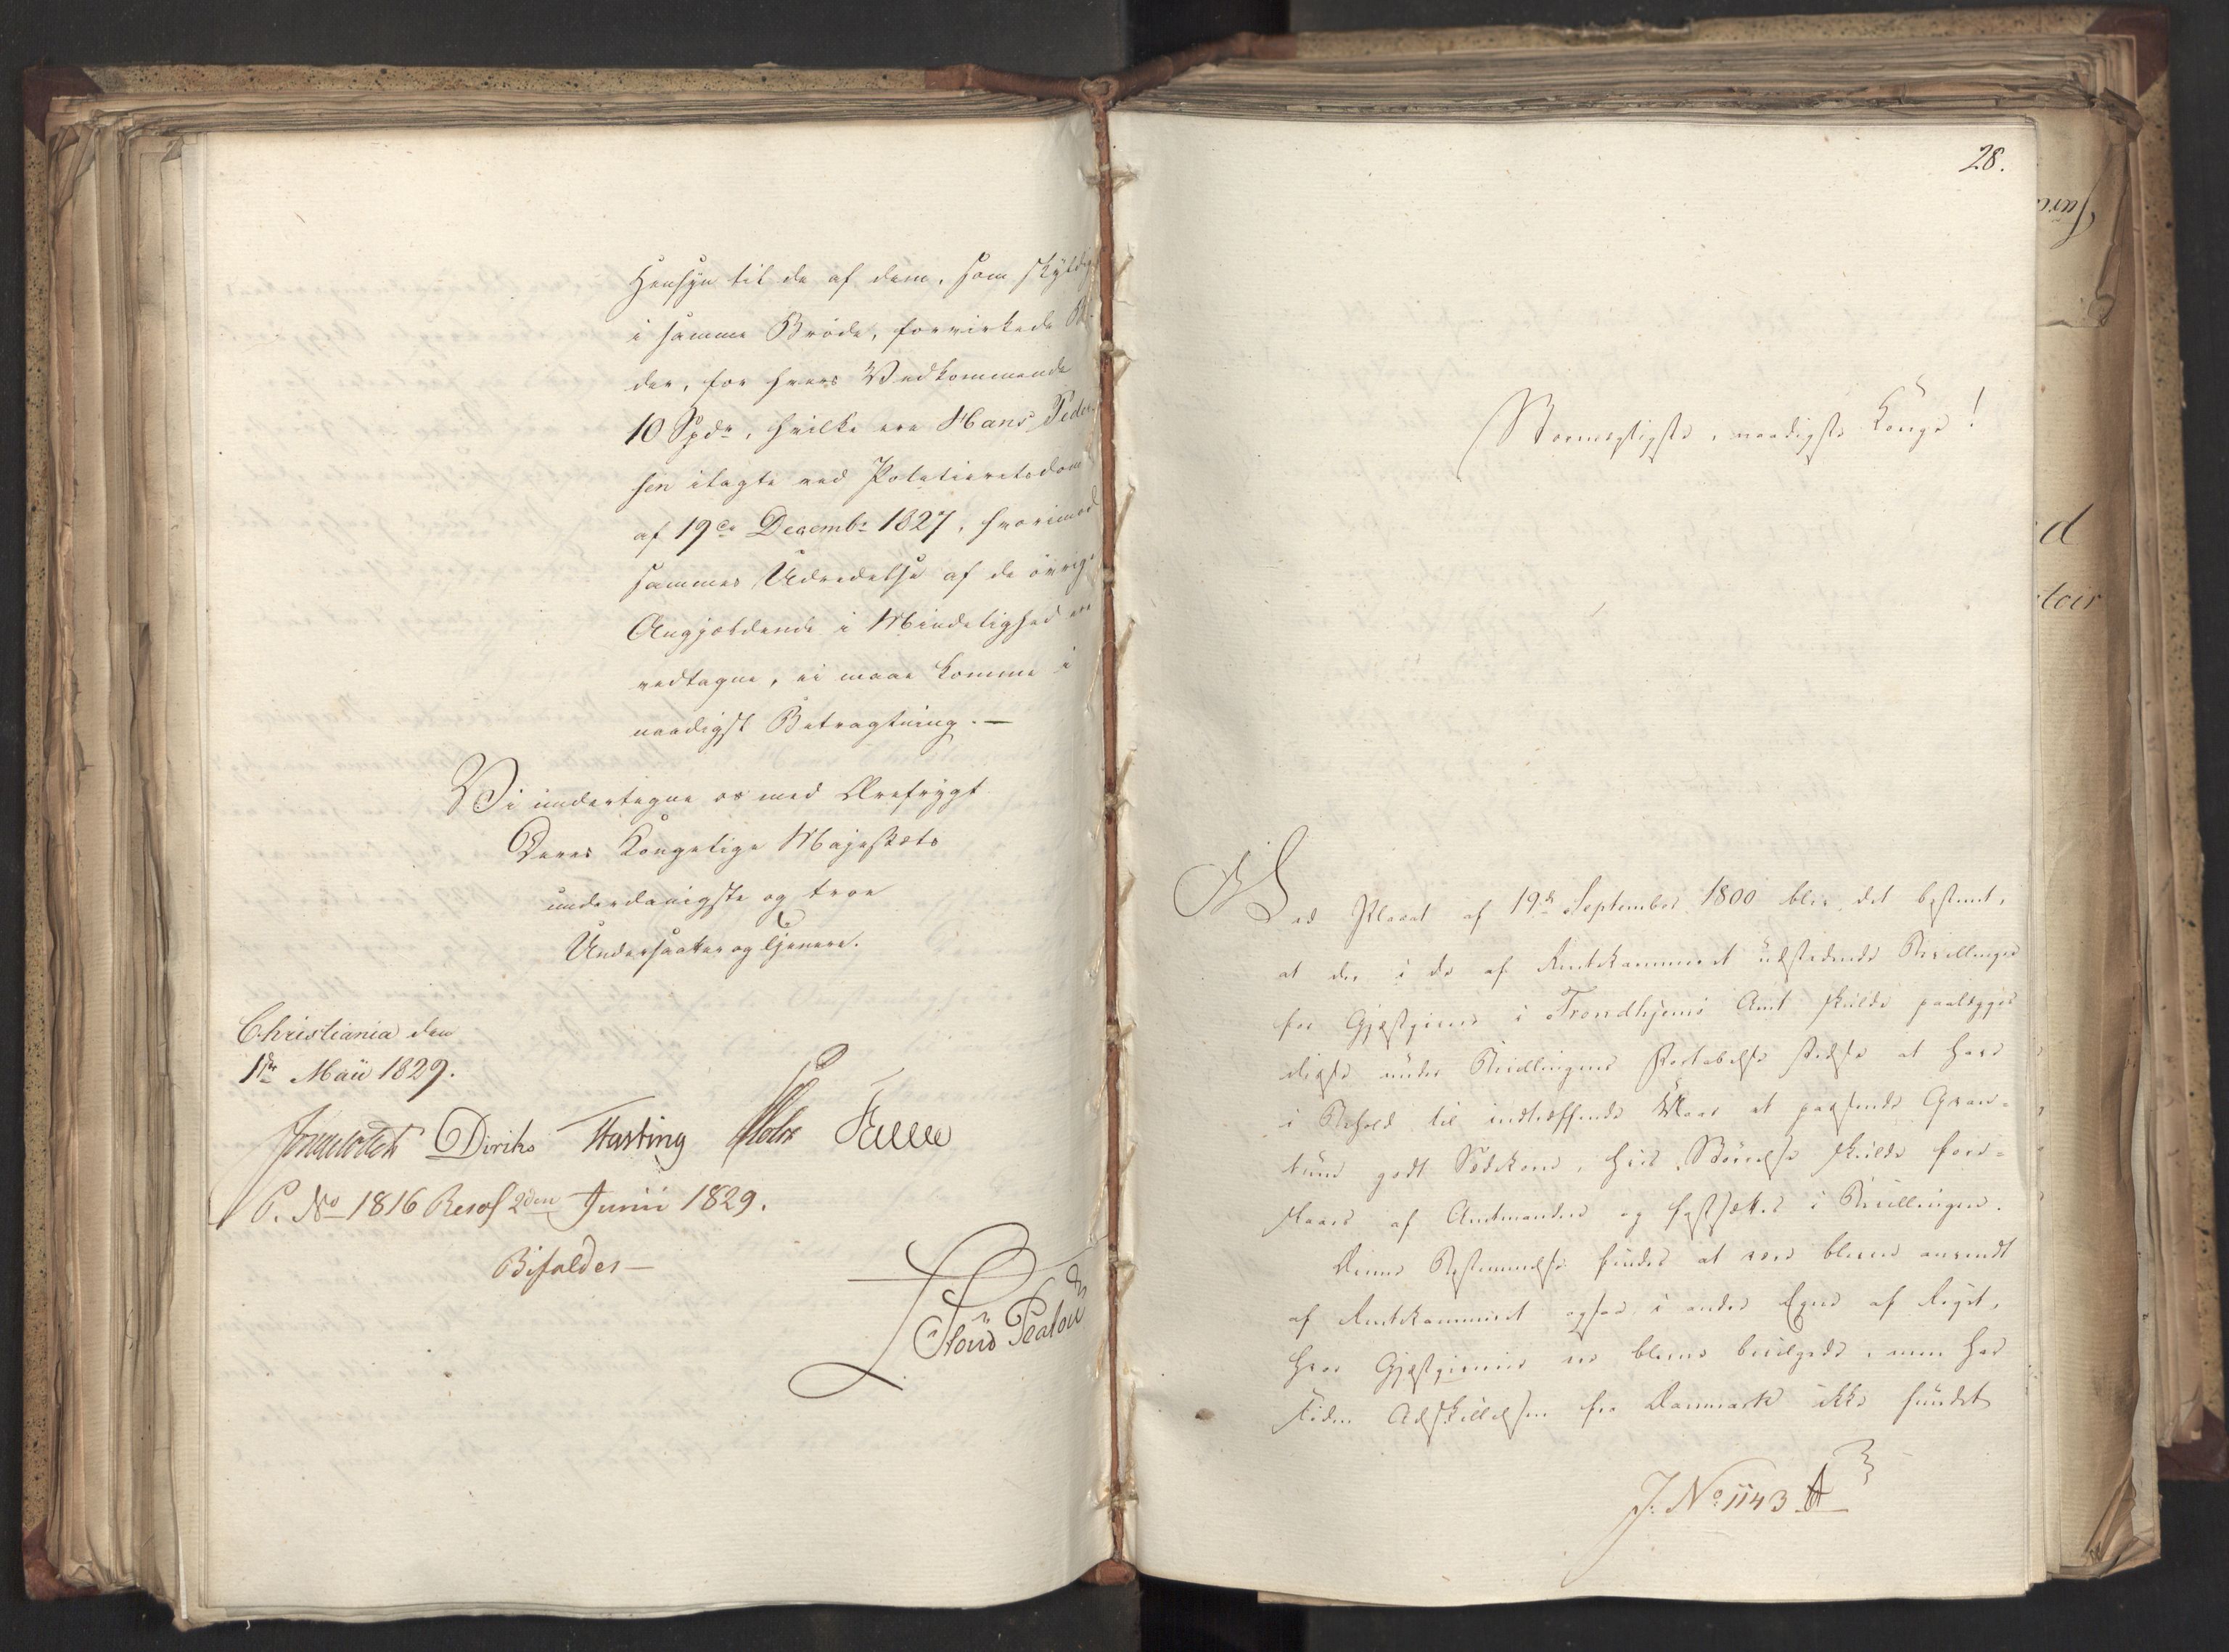 Hensyn til de af dem, som skyldige
i samme Brøde, forvirkede Bø-
der, for hvers Vedkommende
10 Spdr, hvilke ere Hans Peder
sen ilagte ved Politieretsdom
af 19de Decembr 1827, hvorimod
sammes Udredelse af de övrige
Angjældende i Mindelighed er
vedtagne, ei maae komme i
naadigst Betragtning. —
Vi undertegne os med Ærefrygt
Deres Kongelige Majestæts
underdanigste og troe
Undersaatter og Tjenere.
Christiania den
1ste Maii 1829.
Diriks Hasting Holst Falsen
P. No 1816 Resol 2den Junii 1829.
Bifaldes —
28.
Stormægtigste, naadigste Konge!
Ved Placat af 19de September 1800 blev det bestemt,
at der i de af Rentekammeret udstedende Bevillinger
for Gjæstgivere i Trondhjems Amt skulde paalægges
disse under Bevillingens Fortabelse stedse at have
i Behold til indtræffende Vaar et passende Qvan-
tum godt Sædekorn, hvis Størrelse skulde fore-
slaaes af Amtmanden og fastsættes i Bevillingen.
Denne Bestemmelse findes at være bleven anvendt
af Rentekammeret ogsaa i andre Egne af Riget,
hvor Gjæstgiverier ere blevne bevilgede, men har
siden Adskillelsen fra Danmark ikke fundet
J. No 1143 A